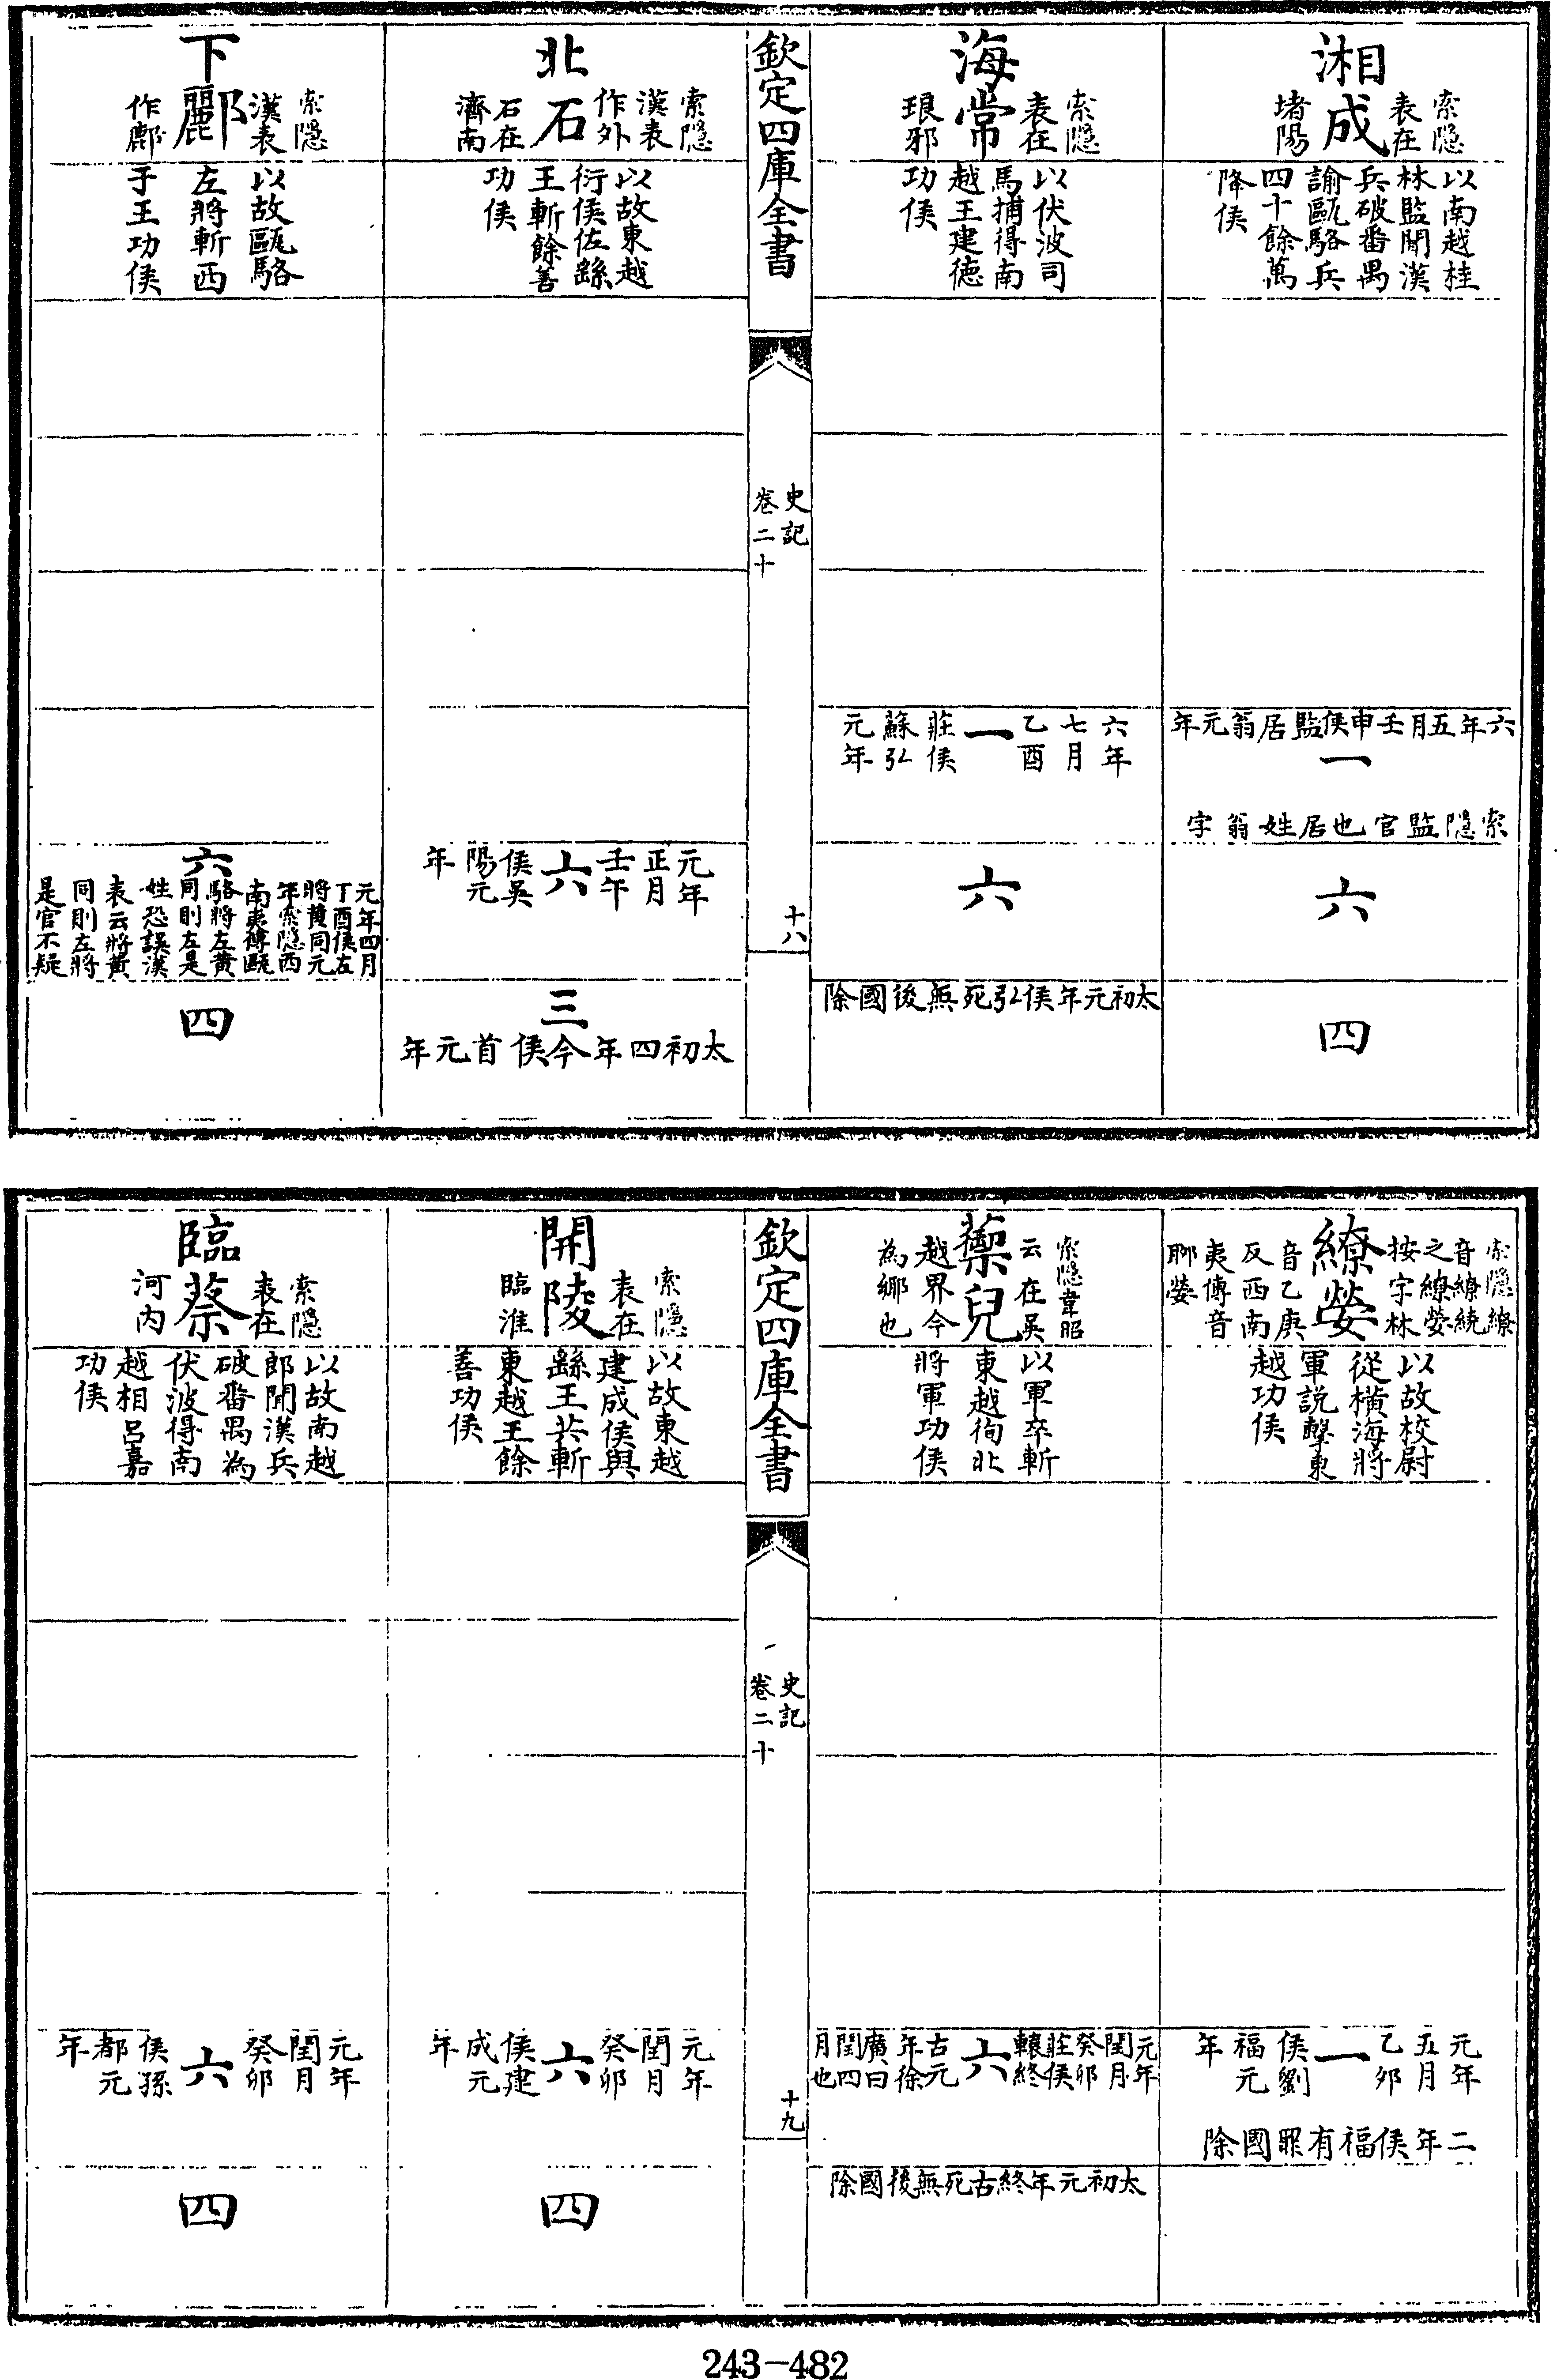 湘成
索隱
表在
堵陽
以南越桂
林監聞漢
兵破番禺
諭甌駱兵
四十餘萬
降侯
六年五月壬申侯監居翁元年
一
索隱監官也居姓翁字
六
四
海常
索隱
表在
琅邪
以伏波司
馬捕得南
越王建德
功侯
六年
七月
乙酉
一
莊侯
蘇弘
元年
六
太初元年侯弘死無後國除
欽定四庫全書
史記
卷二十
十八
北石
索隱
漢表
作外
石在
濟南
以故東越
衍侯佐繇
王斬餘善
功侯
元年
正月
壬午
六
侯吳
陽元
年
三
太初四年今侯首元年
下酈
索隱
漢表
作鄜
以故甌駱
左將斬西
于王功侯
六
元年四月
丁酉侯左
將黃同元
年索隱西
南夷傳甌
駱將左黃
同則左是
姓恐誤漢
表云將黃
同則左將
是官不疑
四
繚嫈
索隱繚
音繚繞
之繚嫈
按字林
音乙庚
反西南
夷傳音
聊嫈
以故校尉
從橫海將
軍說擊東
越功侯
元年
五月
乙卯
一
侯劉
福元
年
二年侯福有罪國除
蘌兒
索隱韋昭
云在吳
越界今
為鄉也
以軍卒斬
東越徇北
將軍功侯
元年
閏月
癸卯
莊侯
轅終
六
古元
年徐
廣曰
閏四
月也
太初元年終古死無後國除
欽定四庫全書
史記
卷二十
十九
開陵
索隱
表在
臨淮
以故東越
建成侯與
繇王共斬
東越王餘
善功侯
元年
閏月
癸卯
六
侯建
成元
年
四
臨蔡
索隱
表在
河內
以故南越
郎聞漢兵
破番禺為
伏波得南
越相呂嘉
功侯
元年
閏月
癸卯
六
侯孫
都元
年
四
243-482